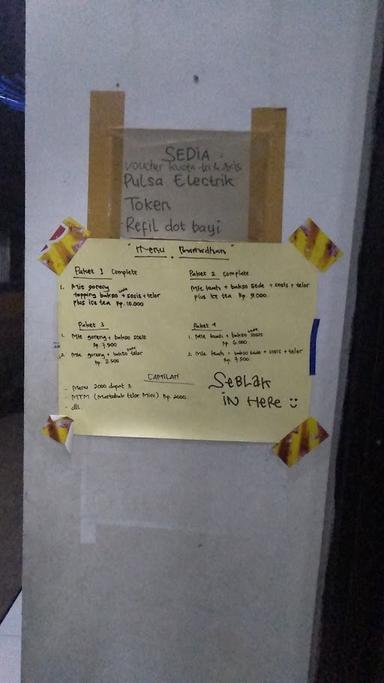 SEDIA
Voucher kuota tri & axis
Pulsa Electrik
Token
Refil dot bayi
"Menu Ramadhan"
Paket 1 Complete
1. Mie goreng
topping bakso sosis + telor
plus ice tea Rp. 10.000
Paket 2 complete
Mie kuah + bakso sede + sosis + telor
plus ice tea Rp. 9.000
Paket 3
1. Mie goreng + bakso sosis
Rp. 7.500
2. Mie goreng + bakso telor
Rp.
Paket 4
1. Mie kuah + bakso sosis
Rp 6.000
2. Mie kuah + bakso sede + sosis + telor
Rp 7.500
CAMILAN
- Menu 2000 dapat 3
- MTM (Martabak telor Mini) Rp. 2000
- dll
SEBLAK
IN HERE